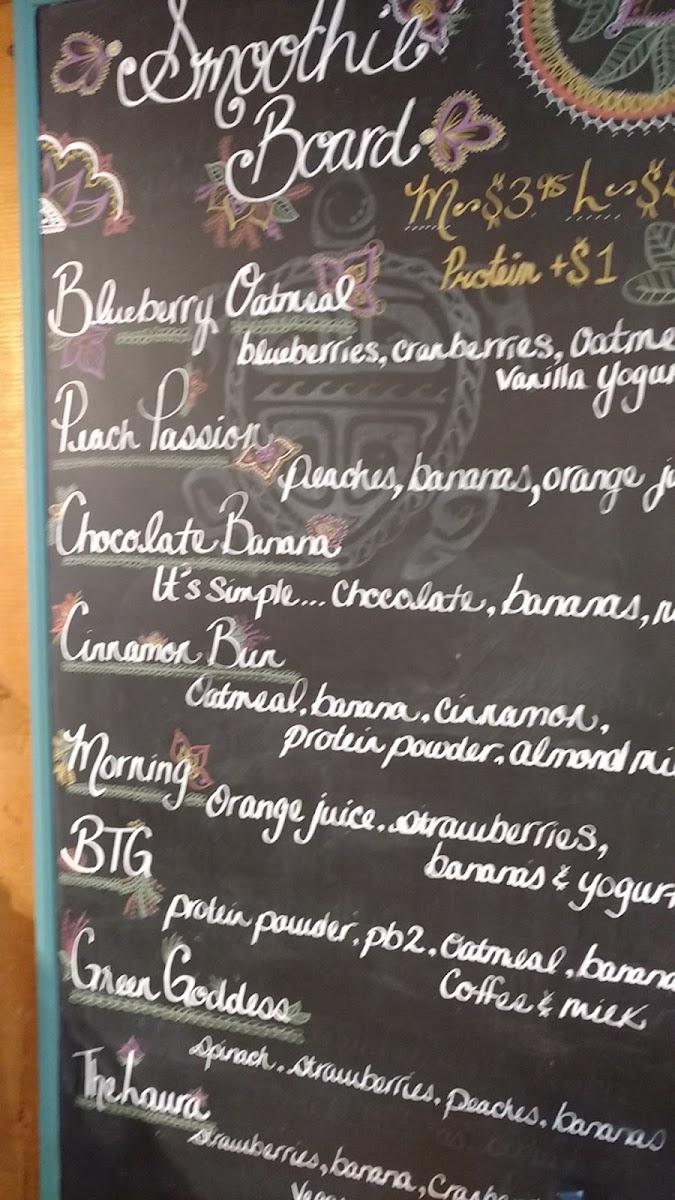 Smoothie
Board
M~$3.95 L~$
Protein +$1
Blueberry Oatmeal
blueberries, cranberries, Oatme
Vanilla yogur
Peach Passion
peaches, bananas, orange ju
Chocolate Banana
It's simple... chocolate, bananas, m
Cinnamon Bun
Oatmeal, banana, cinnamon,
protein powder, almond mi
Morning
Orange juice, strawberries,
bananas & yogurt
BTG
protein powder, pb2, oatmeal, banana
Coffee & milk
Green Goddess
Spinach, strawberries, peaches, bananas
The Laura
strawberries, banana, cranb